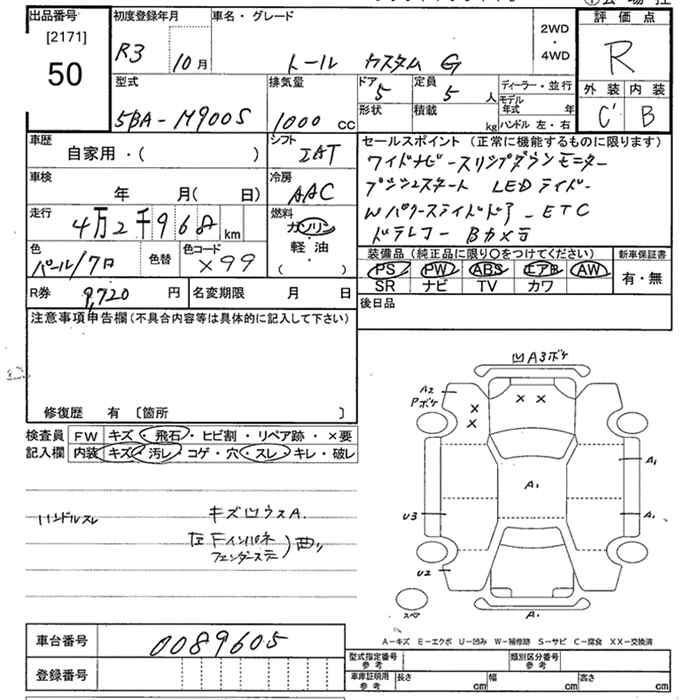 出品番号 初度登録年月 車名・グレード 2WD ・ 4WD 評価点
[2171]
50 R3 10月 トール カスタム G R
型式 排気量 ドア 5 定員 5 人 ディーラー・並行 外装 内装
5BA-M900S 1000 CC 形状 積載 kg モデル年式 年 ハンドル 左・右 C' B
車歴 シフト セールスポイント (正常に機能するものに限ります)
自家用・( ) IAT ワイドナビースリップダウンモニター
車検 冷房 プッシュスタート LEDライト
年 月( 日) AAC Wパワースライドドア ETC
走行 4万2千968 km 燃料 ガソリン ドラレコー Bカメラ
軽・油
・( )
色 パール/クロ 色替 色コード X99 装備品 (純正品に限り○をつけてください) 新車保証書
PS PW ABS エアB AW 有・無
SR ナビ TV カワ
R券 9,720 円 名変期限 月 日 後日品
注意事項申告欄(不具合内容等は具体的に記入して下さい)
修復歴 有 〔箇所 〕
検査員 FW キズ・飛石・ヒビ割・リペア跡・×要
記入欄 内装 キズ・汚レ・コゲ・穴・スレ・キレ・破レ
ハンドルスレ キズ凹ウスA.
左Fインパネ
フェンダーステー
凹A3ボケ
A2
Pボケ
× ×
×
×
A1
A1
A1
U3
U2
A1
スペア
A-キズ E-エクボ U-凹み W-補修跡 S-サビ C-腐食 XX-交換済
車台番号 0089605
登録番号
型式指定番号 参考 類別区分番号 参考
車庫証明用 参考 長さ cm 幅 cm 高さ cm